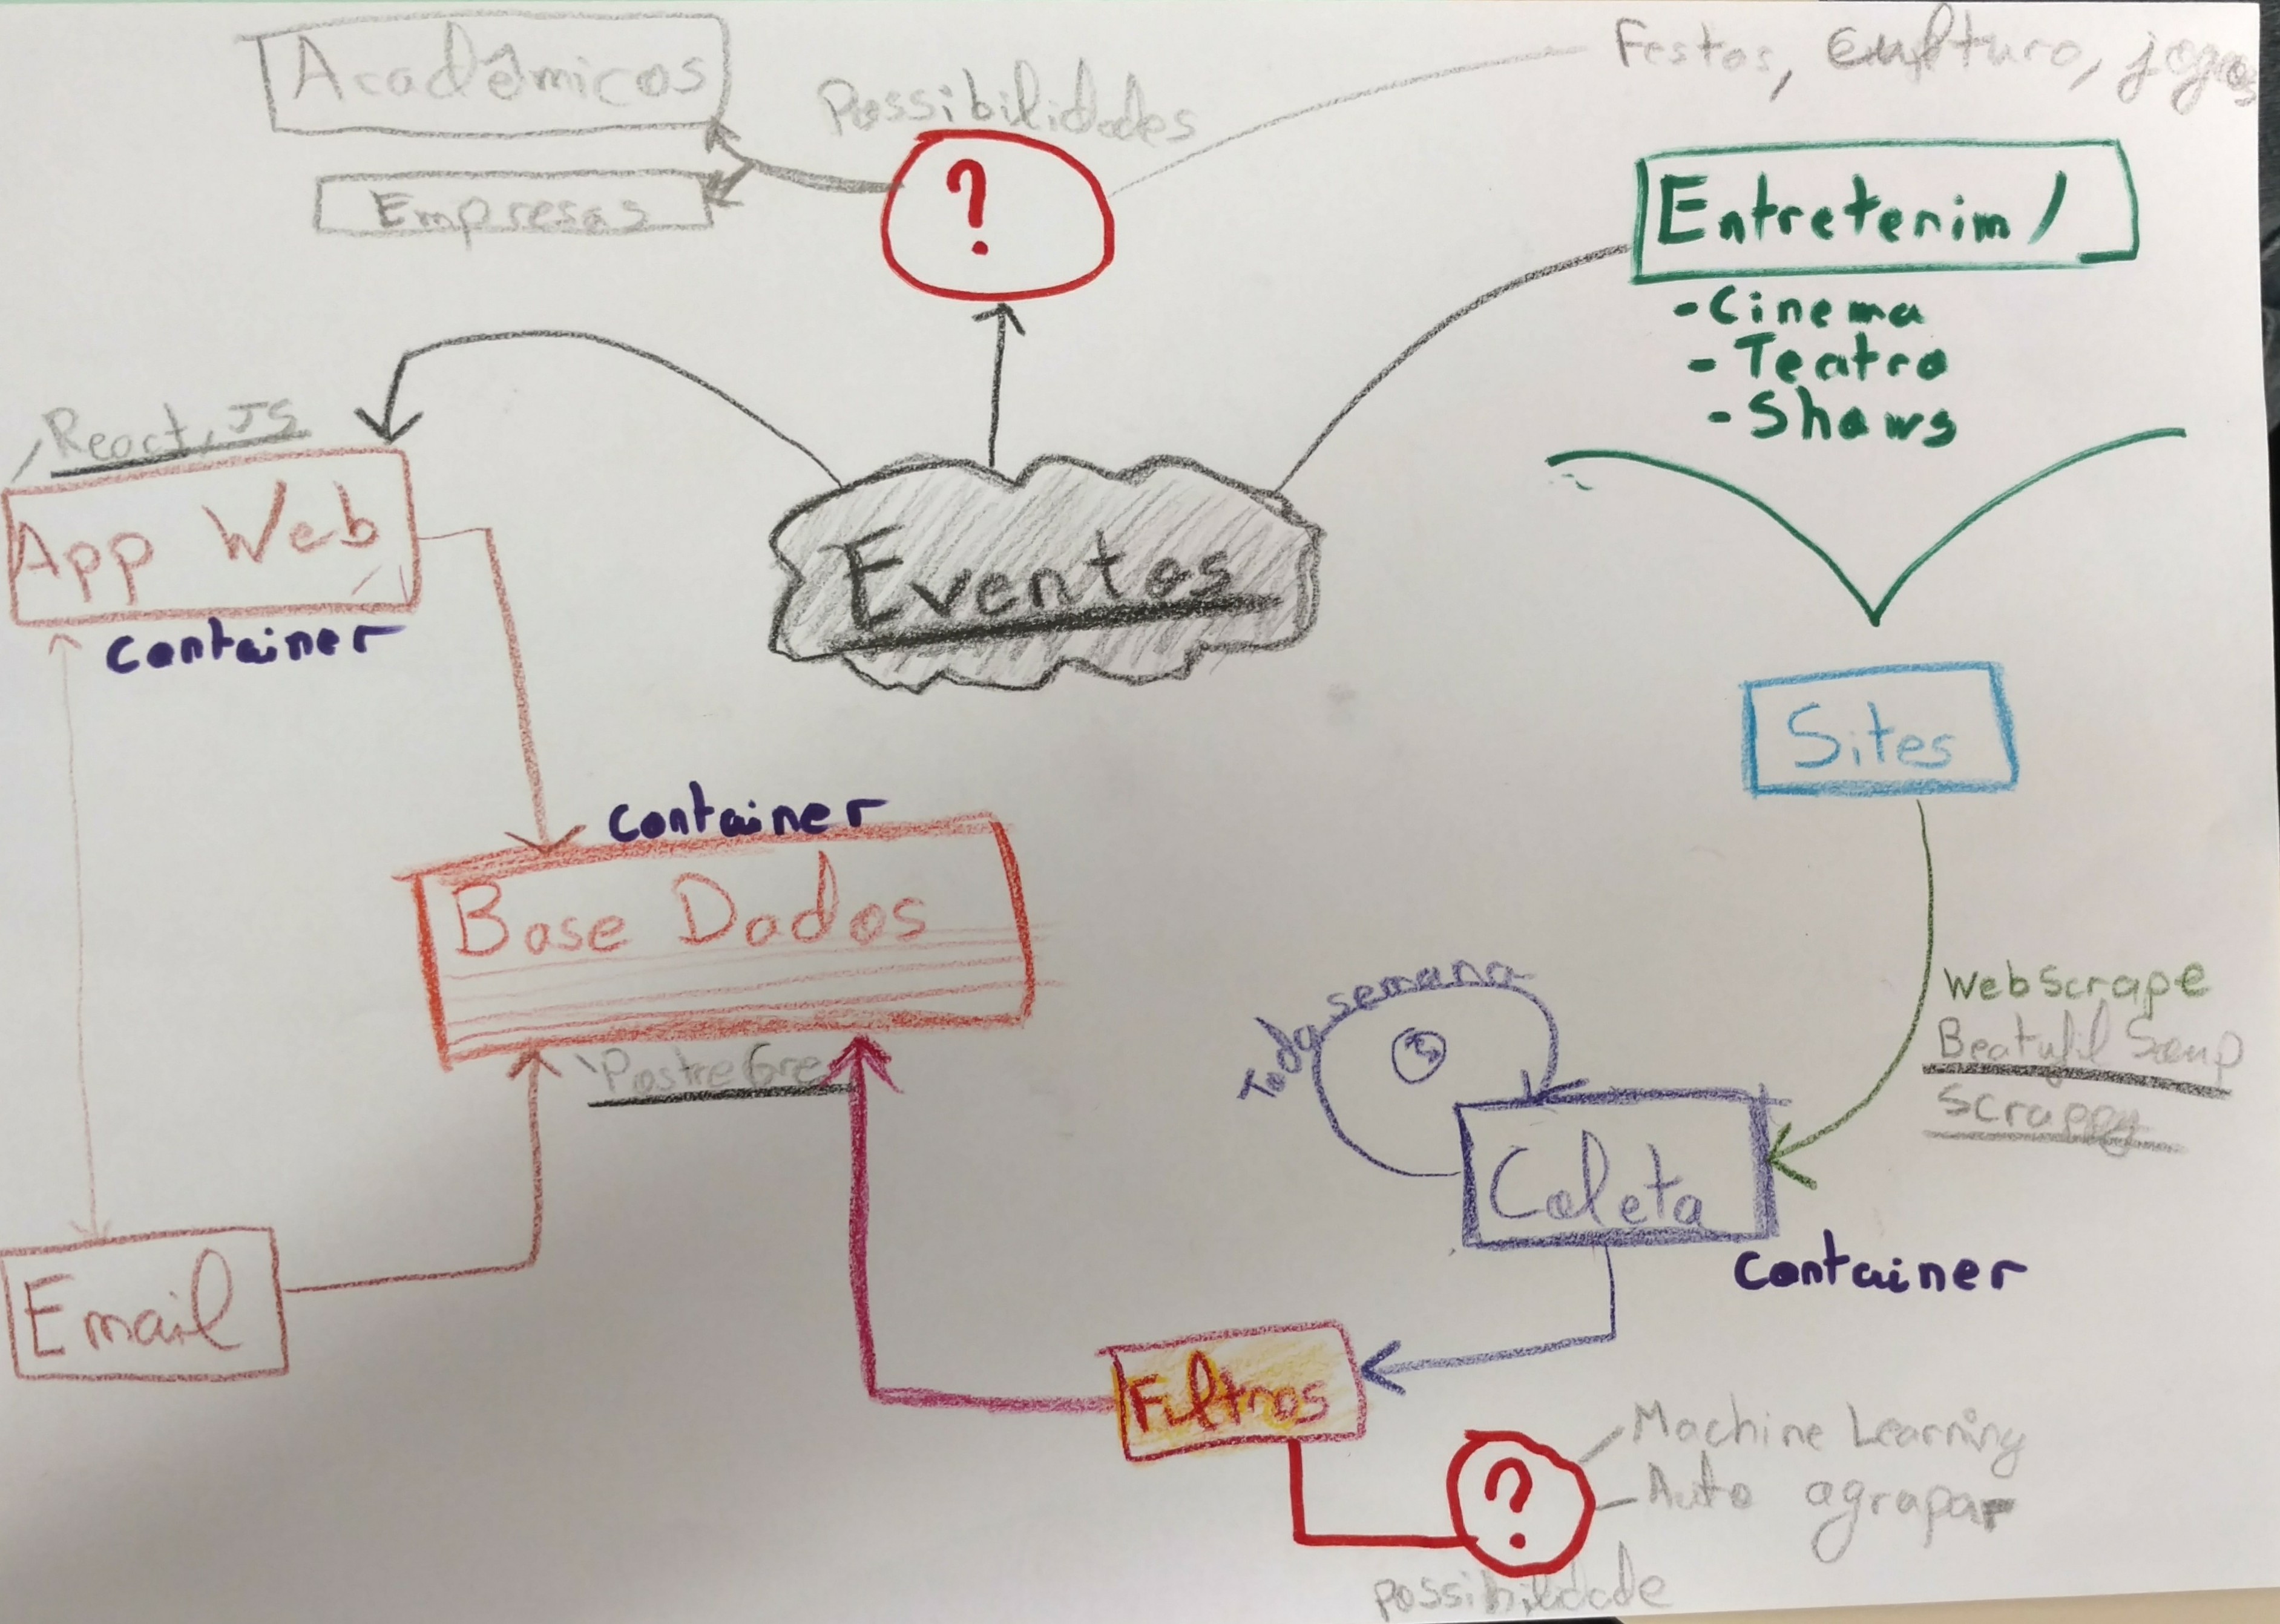 Acadêmicos
Empresas
Possibilidades
?
Festas, cultura, jogos
Entretenim/
- Cinema
- Teatro
- Shows
React, JS
App Web
container
Eventos
Sites
container
Base Dados
PostreGre
Toda semana
WebScrape
Beatufil Soup
Scrappy
Coleta
container
Email
Filtros
?
Machine Learning
Auto agrupar
possibilidade